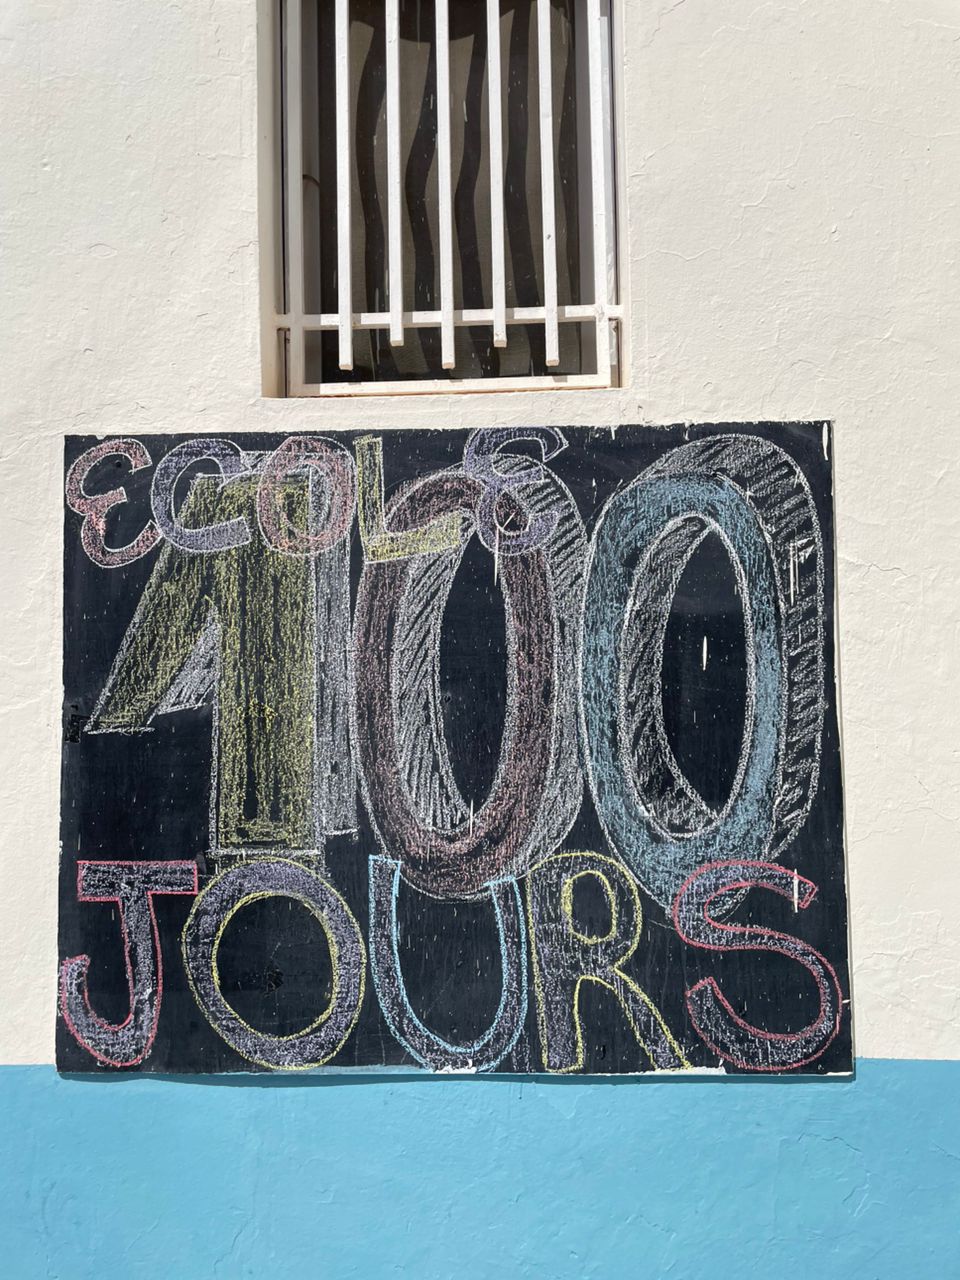 ECOLE
100
JOURS